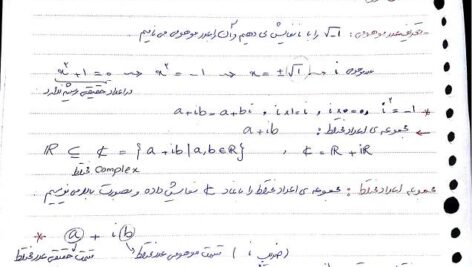 - تعریف عدد موهومی : √-1 را با i نمایش می دهیم و آن را عدد موهومی می نامیم.
x² + 1 = 0 ⇝ x² = -1 ⇝ x = ±√-1 → i موهومی
در اعداد حقیقی ریشه ندارد
* a+ib = a+bi , i×1=i , i×0=0 , i² = -1
← مجموعه ی اعداد مختلط : a+ib
ℝ ⊆ ₵ = {a+ib | a,b∈ℝ} , ₵ = ℝ + iℝ
مختلط Complex
مجموعه اعداد مختلط : مجموعه ی اعداد مختلط را با نماد ₵ نمایش داده و بصورت بالا می نویسیم
* a + i b
قسمت حقیقی عدد مختلط قسمت موهومی عدد مختلط ( ضریب i )